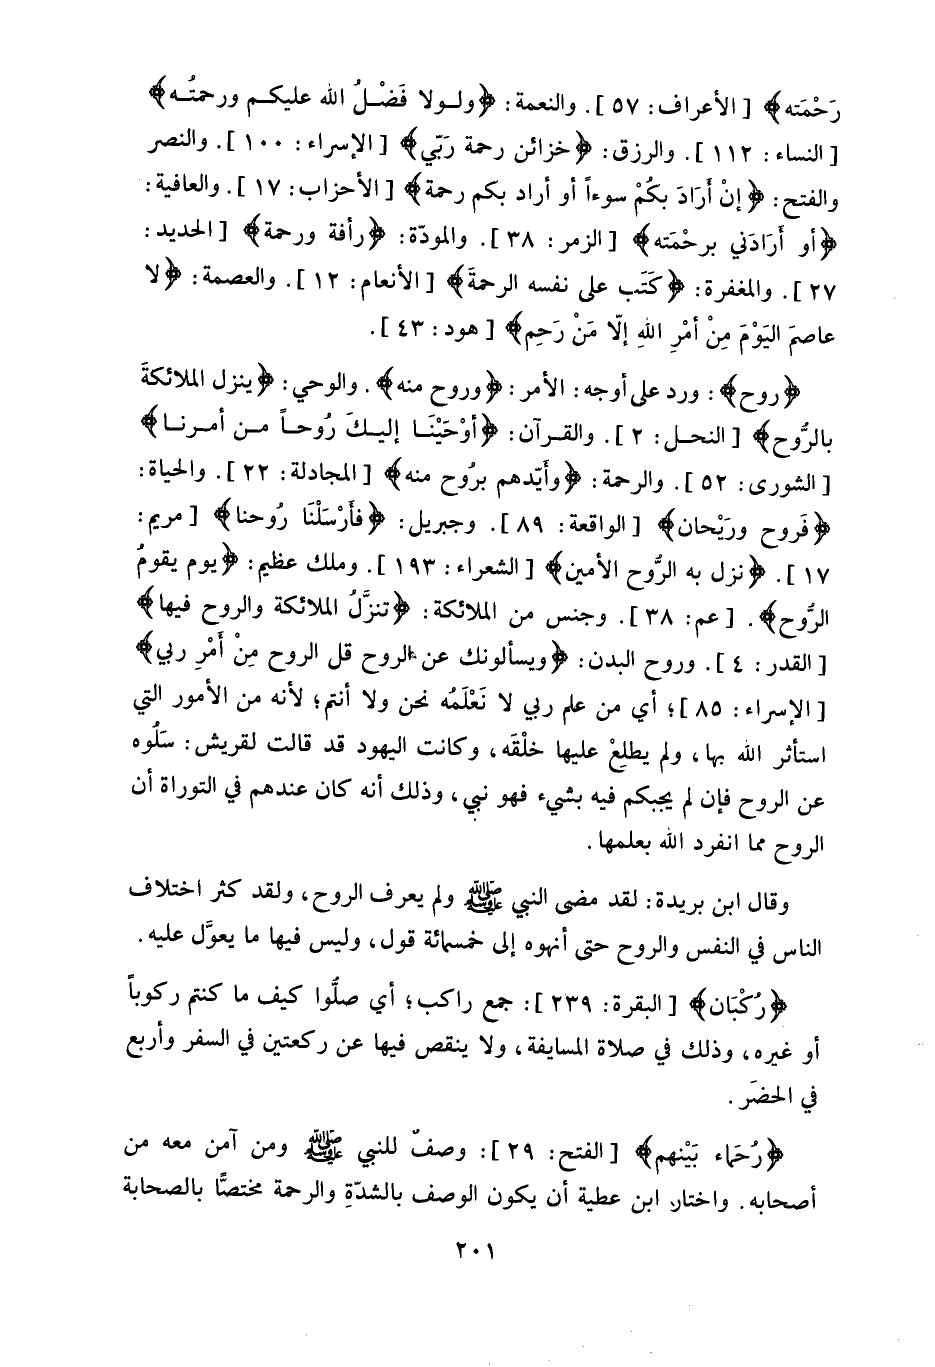 رَحْمَته﴾ [ الأعراف: ٥٧ ]. والنعمة: ﴿ولـولا فَضْـلُ الله عليكـم ورحمتُـه﴾
[ النساء: ١١٢ ]. والرزق: ﴿خزائن رحمة رَبّي﴾ [ الإسراء: ١٠٠ ]. والنصر
والفتح: ﴿إنْ أَرَادَ بكُمْ سوءاً أو أراد بكم رحمة﴾ [ الأحزاب: ١٧ ]. والعافية:
﴿أو أَرَادَني برحْمَته﴾ [ الزمر: ٣٨ ]. والمودّة: ﴿رأفة ورحمة﴾ [ الحديد:
٢٧ ]. والمغفرة: ﴿كَتَب على نفسه الرحمةَ﴾ [ الأنعام: ١٢ ]. والعصمة: ﴿لا
عاصمَ اليَوْمَ مِنْ أمْرِ اللهِ إلّا مَنْ رَحِم﴾ [ هود: ٤٣ ].
﴿روح﴾: ورد على أوجه: الأمر: ﴿وروح منه﴾. والوحي: ﴿ينزل الملائكةَ
بالرُّوح﴾ [ النحـل: ٢ ]. والقـرآن: ﴿أوْحَيْنَـا إليـكَ رُوحـاً مـن أمـرنـا﴾
[ الشورى: ٥٢ ]. والرحمة: ﴿وأَيّدهم برُوح منه﴾ [ المجادلة: ٢٢ ]. والحياة:
﴿فَروح ورَيْحان﴾ [ الواقعة: ٨٩ ]. وجبريل: ﴿فأَرْسَلْنَا رُوحنا﴾ [ مريم:
١٧ ]. ﴿نزل به الرُّوح الأمين﴾ [ الشعراء: ١٩٣ ]. وملك عظيم: ﴿يوم يقومُ
الرُّوح﴾. [ عم: ٣٨ ]. وجنس من الملائكة: ﴿تنزَّلُ الملائكة والروح فيها﴾
[ القدر: ٤ ]. وروح البدن: ﴿ويسألونك عن الروح قل الروح مِنْ أَمْرِ ربي﴾
[ الإسراء: ٨٥ ]؛ أي من علم ربي لا نَعْلَمُه نحن ولا أنتم؛ لأنه من الأمور التي
استأثر الله بها، ولم يطلِعْ عليها خلْقَه، وكانت اليهود قد قالت لقريش: سَلُوه
عن الروح فإن لم يجبكم فيه بشيء فهو نبي، وذلك أنه كان عندهم في التوراة أن
الروح مما انفرد الله بعلمها.
وقال ابن بريدة: لقد مضى النبي ﷺ ولم يعرف الروح، ولقد كثر اختلاف
الناس في النفس والروح حتى أنهوه إلى خمسمائة قول، وليس فيها ما يعوَّل عليه.
﴿رُكْبَان﴾ [ البقرة: ٢٣٩ ]: جمع راكب؛ أي صلُّوا كيف ما كنتم ركوباً
أو غيره، وذلك في صلاة المسايفة، ولا ينقص فيها عن ركعتين في السفر وأربع
في الحضَر.
﴿رُحَماء بَيْنهم﴾ [ الفتح: ٢٩ ]: وصفٌ للنبي ﷺ ومن آمن معه من
أصحابه. واختار ابن عطية أن يكون الوصف بالشدّةِ والرحمة مختصًّا بالصحابة
٢٠١